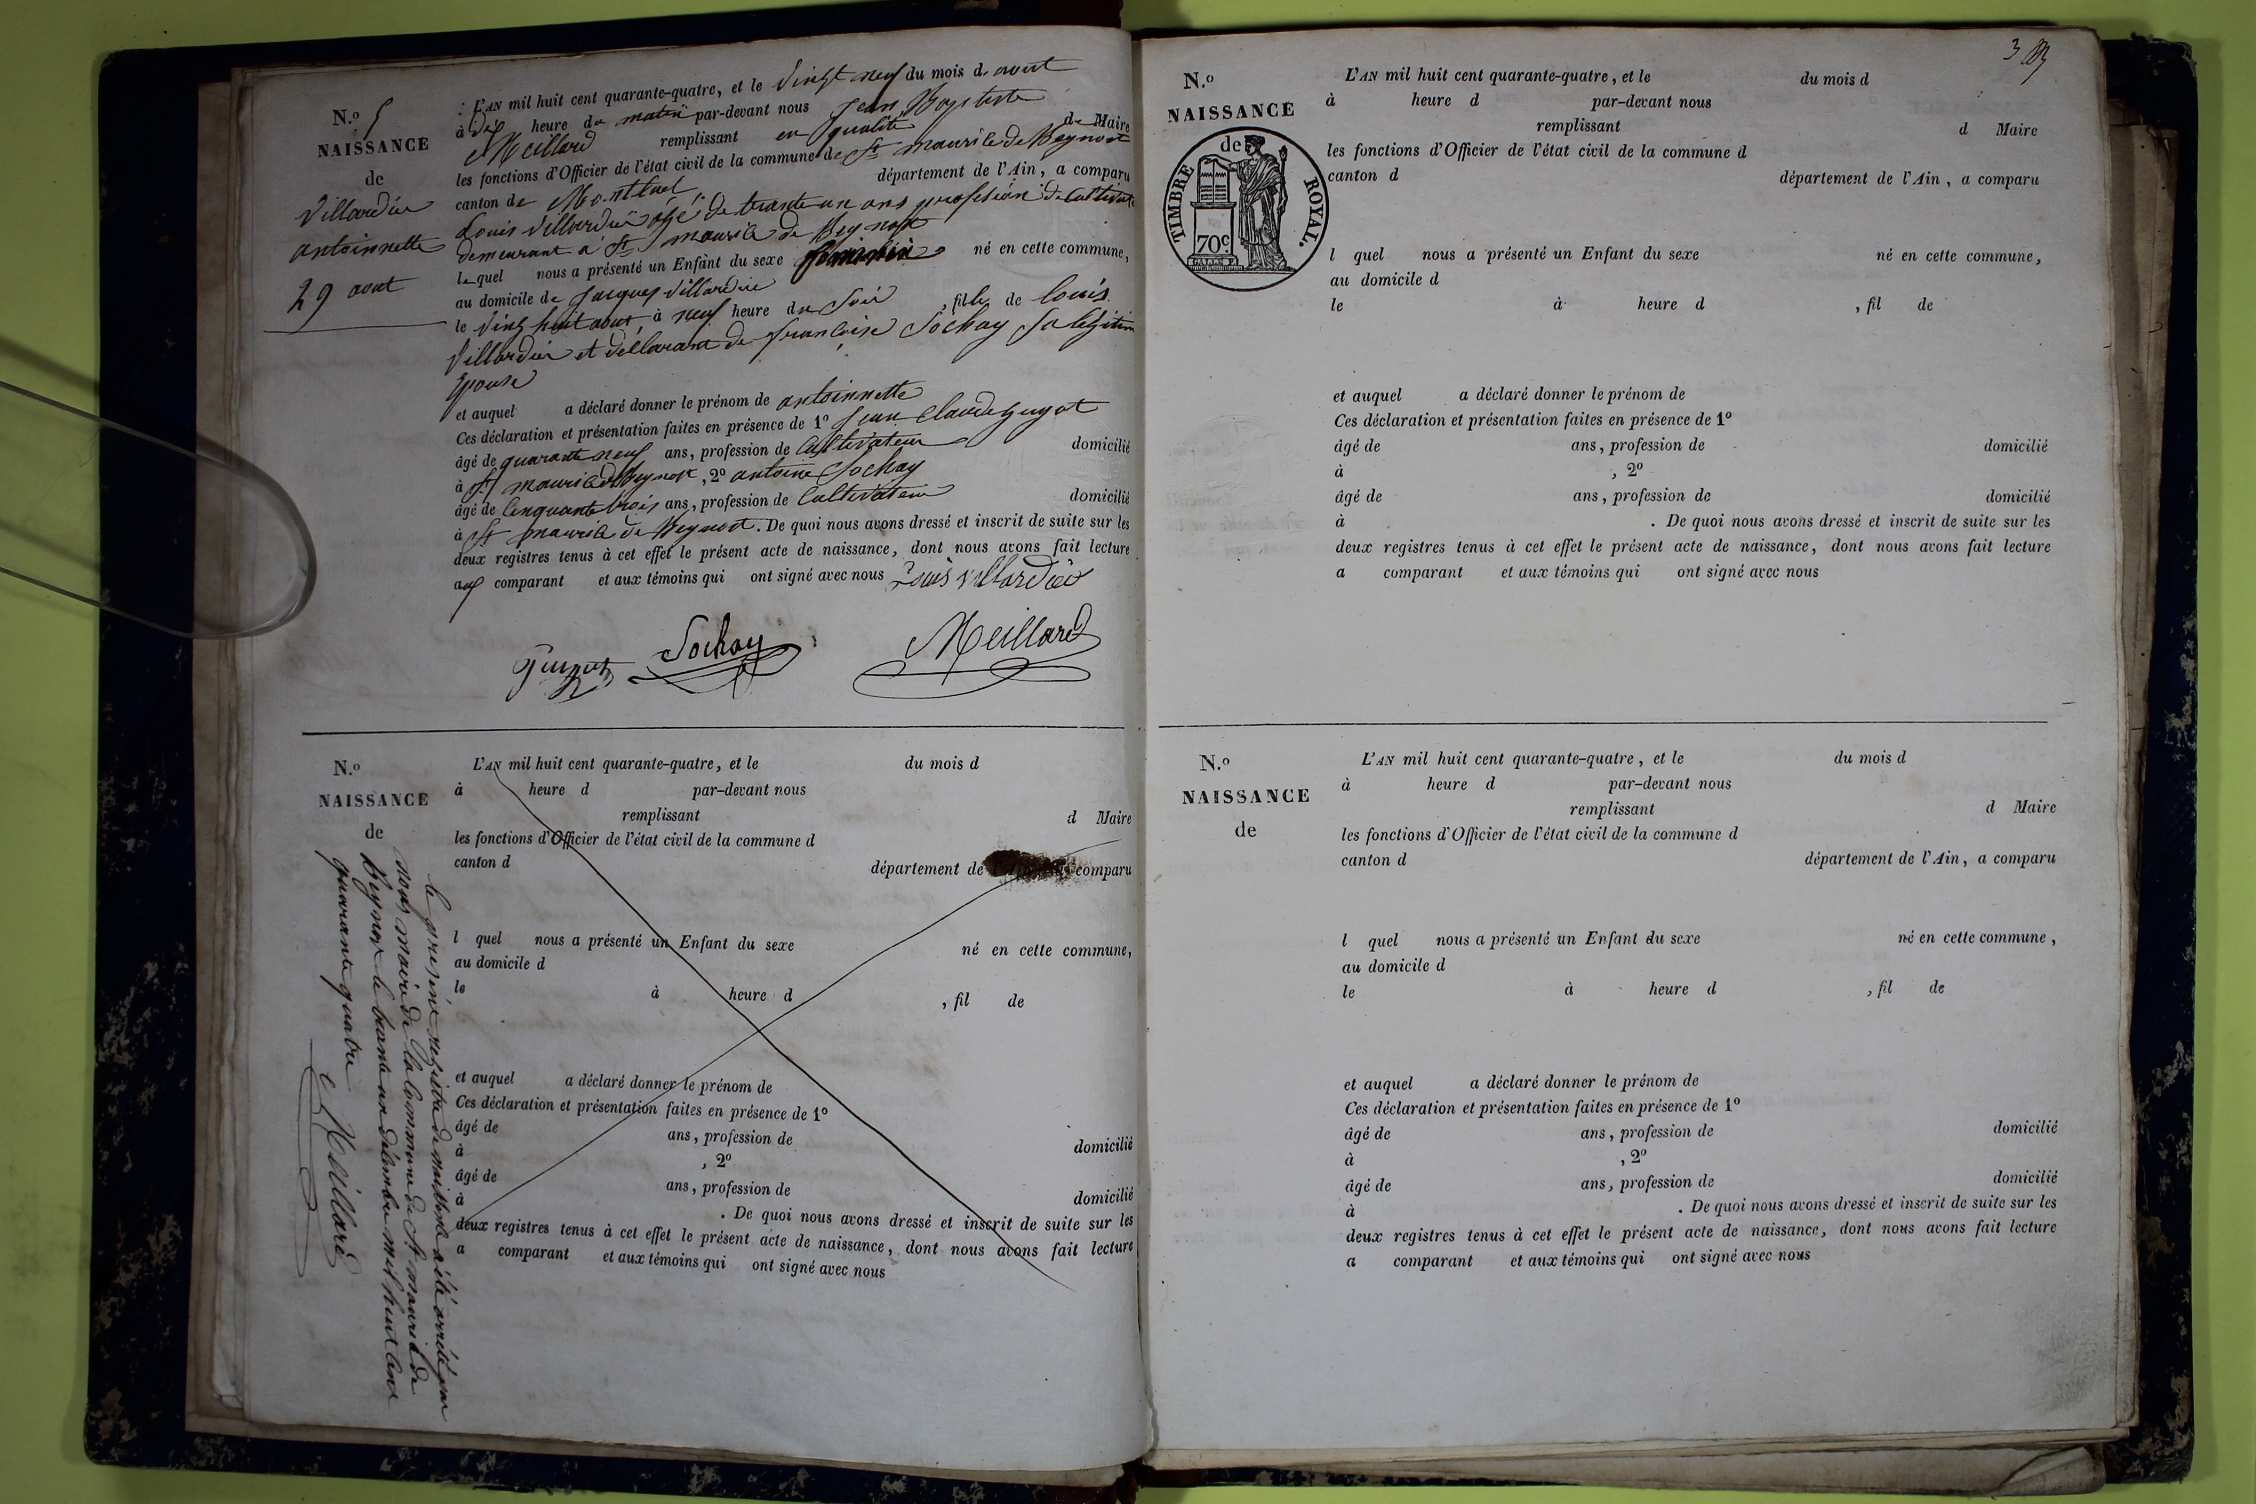 N.º 5
NAISSANCE
de
Villardier
antoinnette
29 aout
L'AN mil huit cent quarante-quatre, et le Vingt neuf du mois d. aout
à dix heure du matin par-devant nous Jean Baptiste
Meillard remplissant en qualité de Maire
les fonctions d'Officier de l'état civil de la commune de St maurice de Beynost
canton de Montluel département de l'Ain, a comparu
Louis Villardier agé de trante un ans profesion de Cultivateur
demeurant a St maurice de Beynost
lequel nous a présenté un Enfant du sexe féminin né en cette commune,
au domicile de Jacques Villardier
le Vingt huit aout, à neuf heure du Soir, fille de louis
Villardier et dellarant de francoise Sochay Sa legitim
Epouse
et auquel a déclaré donner le prénom de antoinnette
Ces déclaration et présentation faites en présence de 1º Jean Claude guyot
âgé de quarante neuf ans, profession de Cultivateur domicilié
à St maurice de Beynost, 2º antoine Sochay
âgé de Cinquante trois ans, profession de Cultivateur domicilié
à St maurice de Beynost. De quoi nous avons dressé et inscrit de suite sur les
deux registres tenus à cet effet le présent acte de naissance, dont nous avons fait lecture
aux comparant et aux témoins qui ont signé avec nous Louis Villardier
Sochay Meillard
N.º
NAISSANCE
de
L'AN mil huit cent quarante-quatre, et le du mois d
à heure d par-devant nous
remplissant d Maire
les fonctions d'Officier de l'état civil de la commune d
canton d département de comparu
l quel nous a présenté un Enfant du sexe né en cette commune,
au domicile d
le à heure d , fil de
et auquel a déclaré donner le prénom de
Ces déclaration et présentation faites en présence de 1º
âgé de ans, profession de domicilié
à , 2º
âgé de ans, profession de domicilié
à . De quoi nous avons dressé et inscrit de suite sur les
deux registres tenus à cet effet le présent acte de naissance, dont nous avons fait lecture
a comparant et aux témoins qui ont signé avec nous
le present registre de naissance a été arrêté par
nous maire de la commune de St maurice de
Beynost le trante un décembre mil huit cent
quarante quatre
Meillard
3
N.º
NAISSANCE
de
TIMBRE ROYAL.
70c.
L'AN mil huit cent quarante-quatre, et le du mois d
à heure d par-devant nous
remplissant d Maire
les fonctions d'Officier de l'état civil de la commune d
canton d département de l'Ain, a comparu
l quel nous a présenté un Enfant du sexe né en cette commune,
au domicile d
le à heure d , fil de
et auquel a déclaré donner le prénom de
Ces déclaration et présentation faites en présence de 1º
âgé de ans, profession de domicilié
à , 2º
âgé de ans, profession de domicilié
à . De quoi nous avons dressé et inscrit de suite sur les
deux registres tenus à cet effet le présent acte de naissance, dont nous avons fait lecture
a comparant et aux témoins qui ont signé avec nous
N.º
NAISSANCE
de
L'AN mil huit cent quarante-quatre, et le du mois d
à heure d par-devant nous
remplissant d Maire
les fonctions d'Officier de l'état civil de la commune d
canton d département de l'Ain, a comparu
l quel nous a présenté un Enfant du sexe né en cette commune,
au domicile d
le à heure d , fil de
et auquel a déclaré donner le prénom de
Ces déclaration et présentation faites en présence de 1º
âgé de ans, profession de domicilié
à , 2º
âgé de ans, profession de domicilié
à . De quoi nous avons dressé et inscrit de suite sur les
deux registres tenus à cet effet le présent acte de naissance, dont nous avons fait lecture
a comparant et aux témoins qui ont signé avec nous